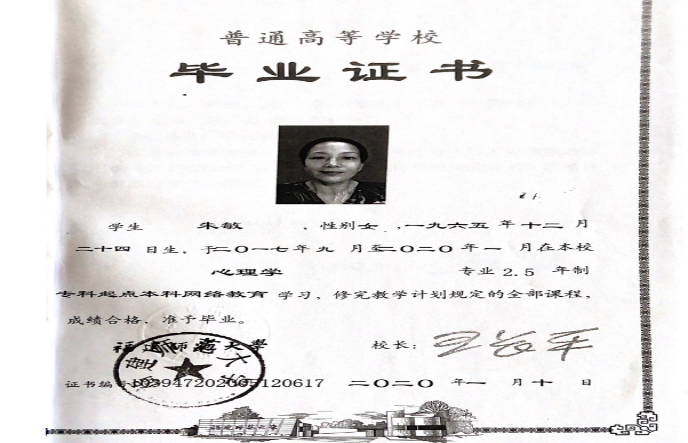 普通高等学校
毕业证书
学生 朱敏 ,性别女,一九六五年十二月
二十四日生,于二〇一七年九月至二〇二〇年一月在本校
心理学 专业 2.5 年制
专科起点本科网络教育 学习,修完教学计划规定的全部课程,
成绩合格,准予毕业。
福建师范大学 校长:
证书编号 二〇二〇年一月十日